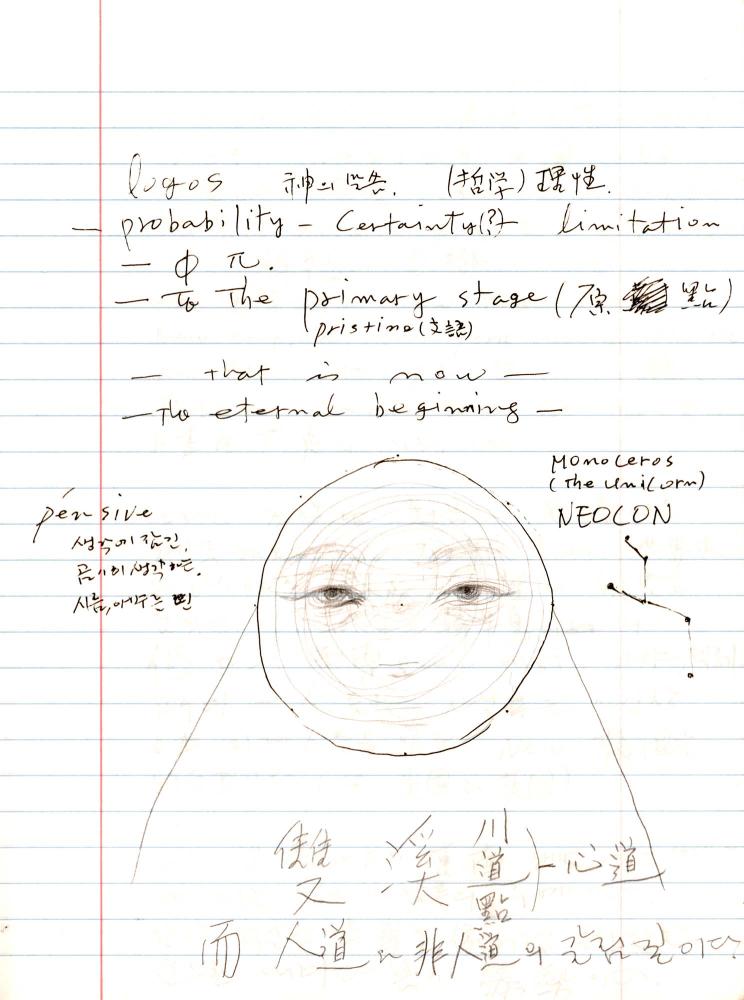 logos 神의 말씀. (哲学) 理性.
— probability — Certainty(?) limitation
— φ π.
— To The primary stage (原 點)
pristine (文語)
— that is now —
— The eternal beginning —
Monoceros
(the unicorn)
NEOCON
pénsive
생각에 잠긴,
곰곰히 생각하는.
시름에
雙 溪 川
道 — 心道
點
而 人道 非人道의 갈림길이다.